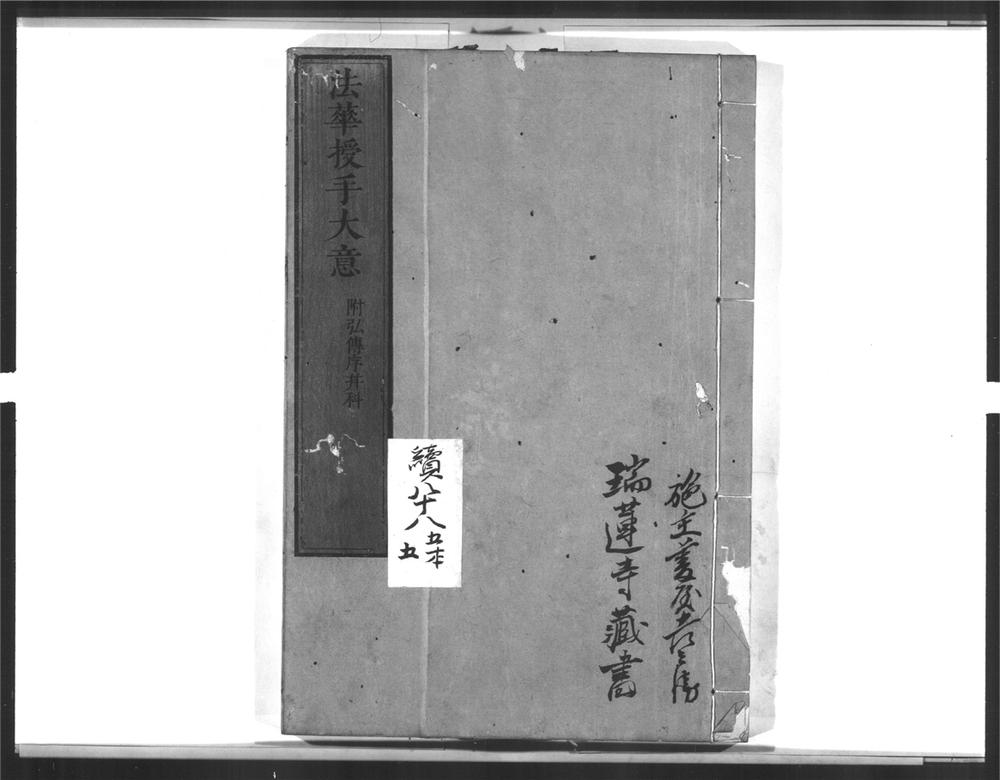 施主菱屋六左衛
瑞蓮寺藏書
續八十八 五本
五
法華授手大意
附弘傳序并科